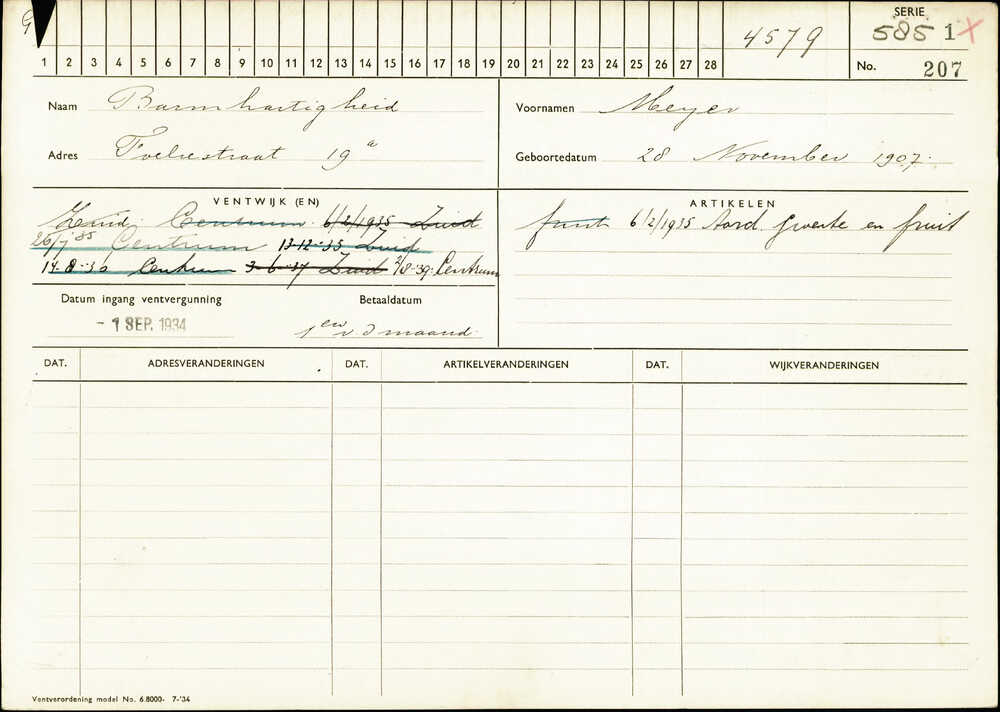 SERIE
4579 585 1 X
1 2 3 4 5 6 7 8 9 10 11 12 13 14 15 16 17 18 19 20 21 22 23 24 25 26 27 28 No. 207
Naam Barmhartigheid Voornamen Meyer
Adres straat 19 a Geboortedatum 28 November 1907.
VENTWIJK (EN) ARTIKELEN
Zuid; Centrum 6/2/1935 Zuid fruit 6/2/1935 Aard. groente en fruit
26/7 '35 Centrum 13-12-35 Zuid
14-8-36 Centrum 3-6-37 Zuid 2/8-39. Centrum
Datum ingang ventvergunning Betaaldatum
- 1 SEP. 1934 1en v. d maand.
DAT. ADRESVERANDERINGEN DAT. ARTIKELVERANDERINGEN DAT. WIJKVERANDERINGEN
Ventverordening model No. 6. 8000- 7-'34